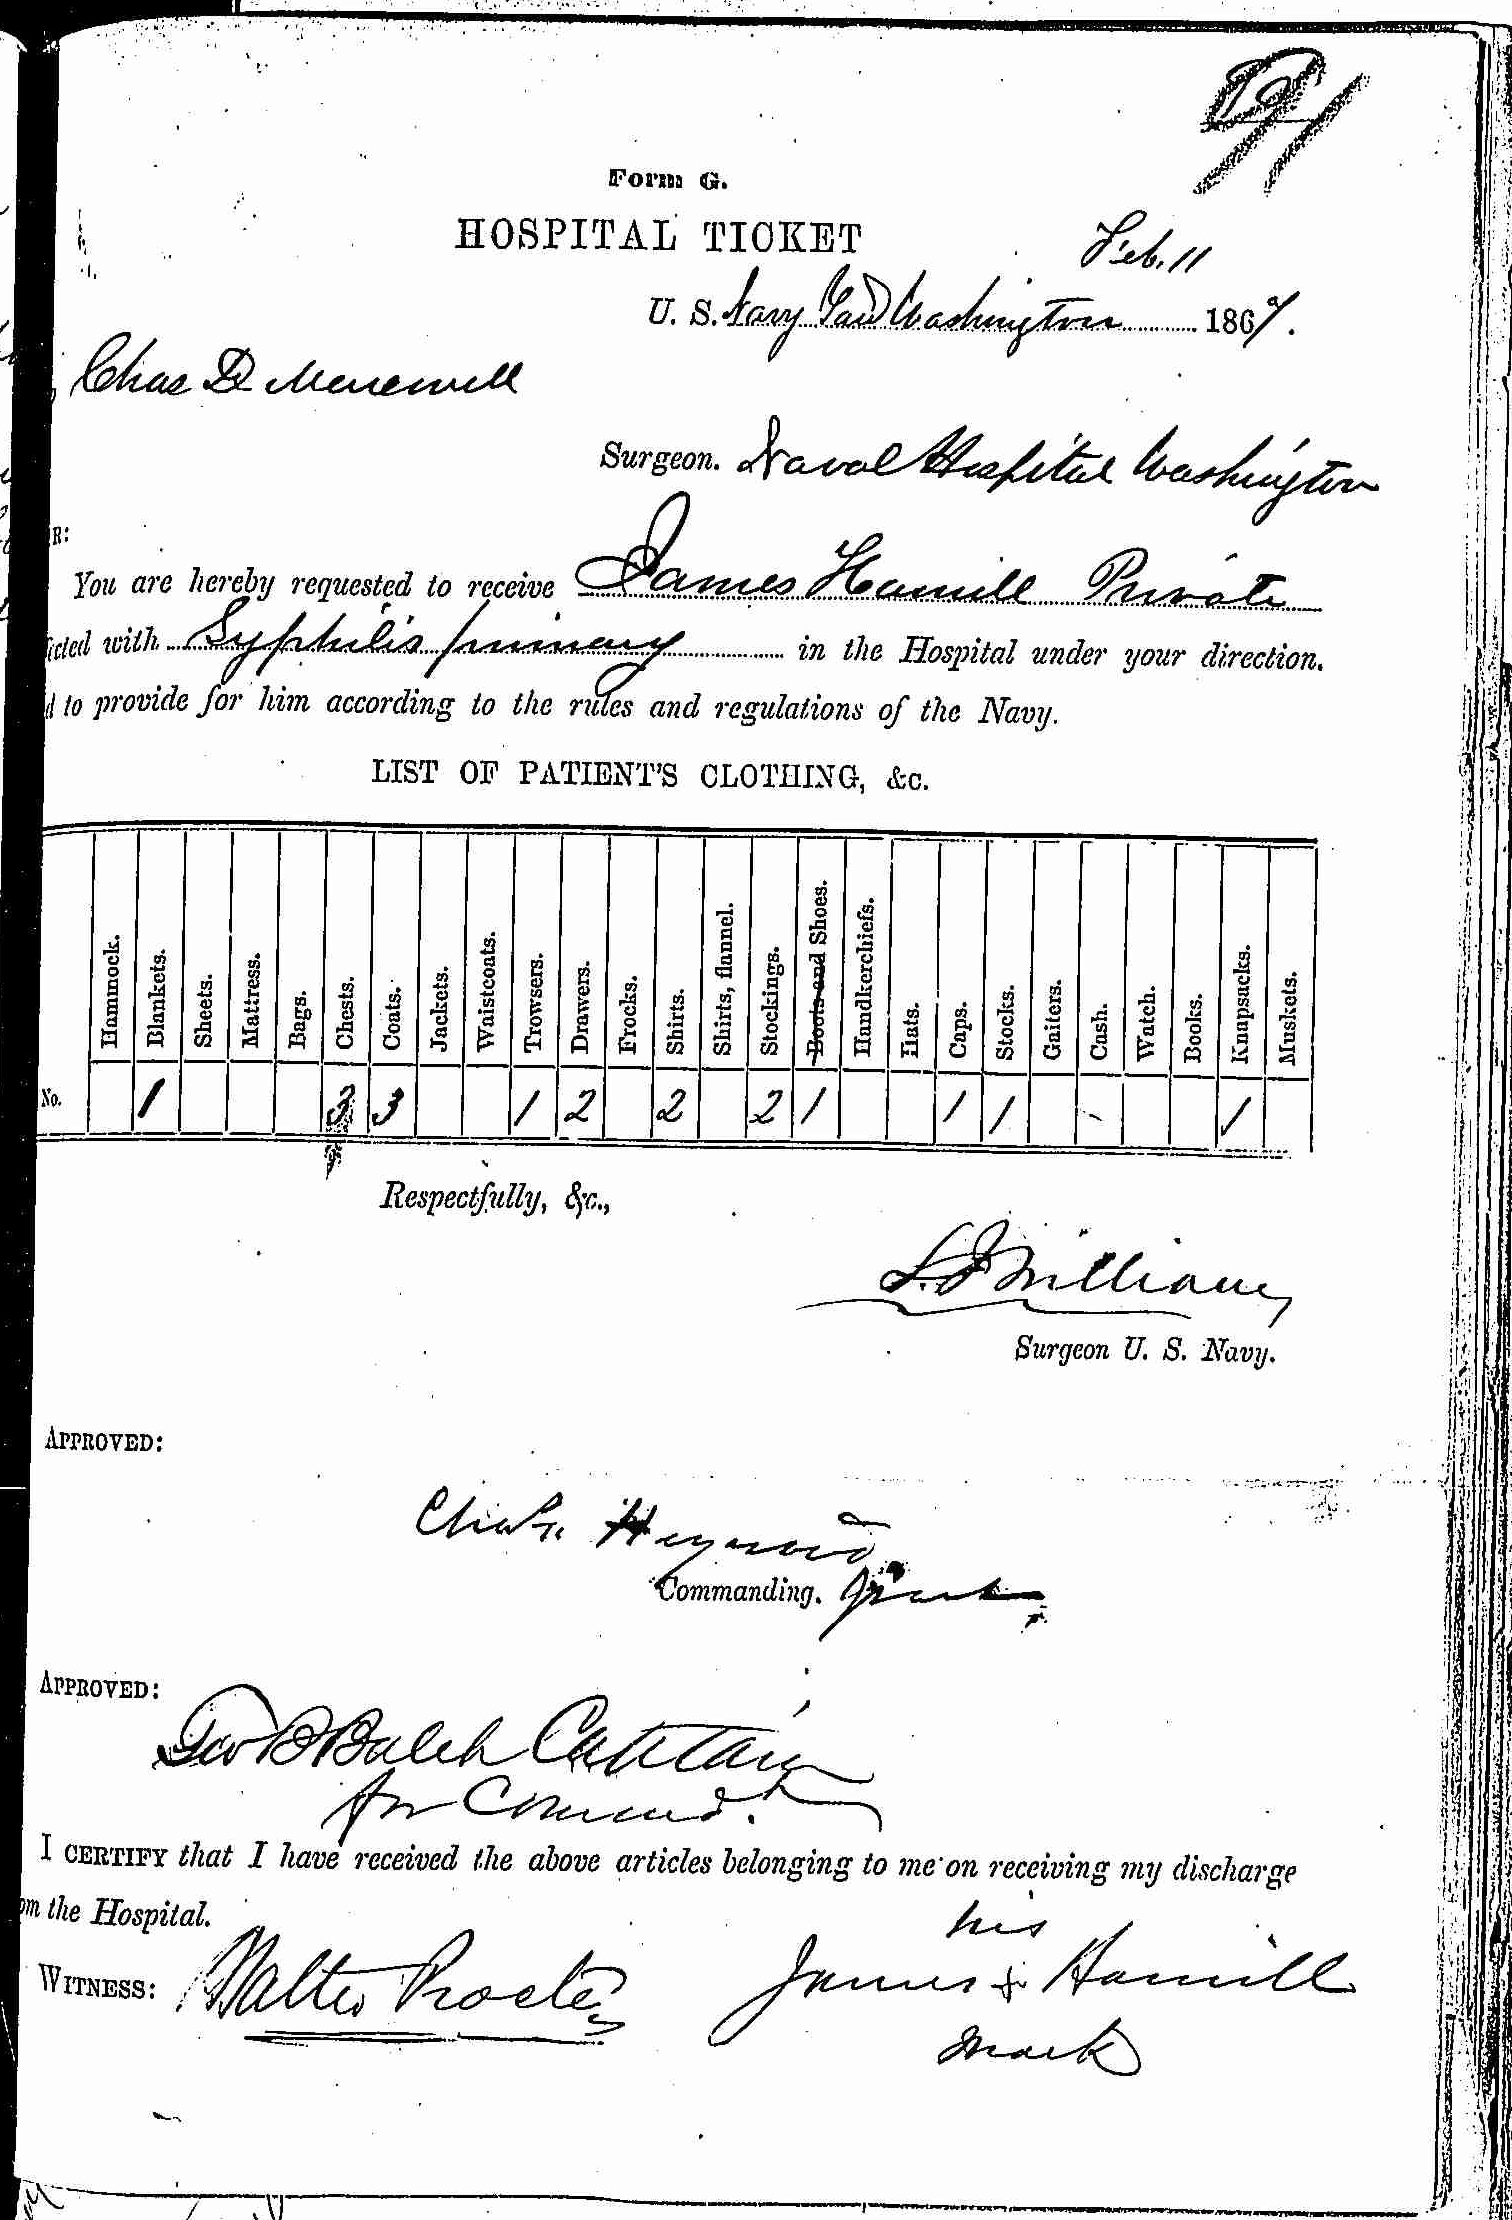 91
Form G.
HOSPITAL TICKET
Feb. 11
U. S. Navy Yard Washington 1867.
Chas D
Surgeon. Naval Hospital Washington
R:
You are hereby requested to receive James Hamill Private
icted with Syphilis primary in the Hospital under your direction.
d to provide for him according to the rules and regulations of the Navy.
LIST OF PATIENT'S CLOTHING, &c.
Hammock. Blankets. Sheets. Mattress. Bags. Chests. Coats. Jackets. Waistcoats. Trowsers. Drawers. Frocks. Shirts. Shirts, flannel. Stockings. Boots and Shoes. Handkerchiefs. Hats. Caps. Stocks. Gaiters. Cash. Watch. Books. Knapsacks. Muskets.
No. 1 3 3 1 2 2 2 1 1 1 - 1
Respectfully, &c.,
Surgeon U. S. Navy.
APPROVED:
Heywood
Commanding.
APPROVED:
Geo B Balch Captain
for Command.
I CERTIFY that I have received the above articles belonging to me on receiving my discharge
om the Hospital.
his
WITNESS: Walter Procter James + Hamill
mark